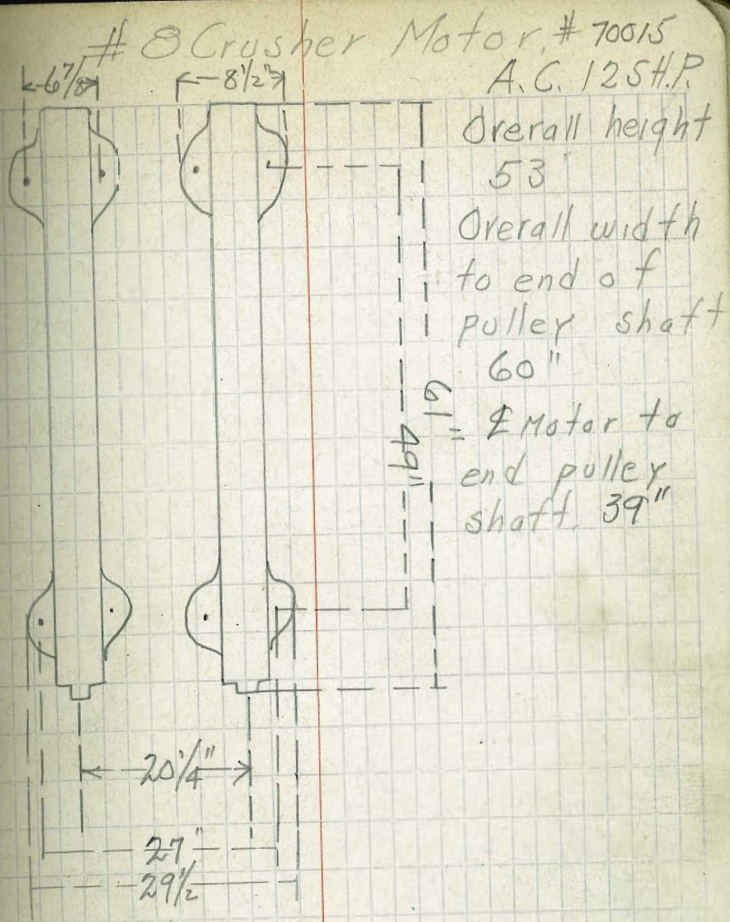 # 8 Crusher Motor. # 70015
A.C. 125 H.P.
6 7/8
8 1/2"
Overall height
53"
Overall width
to end of
pulley shaft
60"
℄ Motor to
end pulley
shaft. 39"
61"
49"
20 1/4"
27"
29 1/2